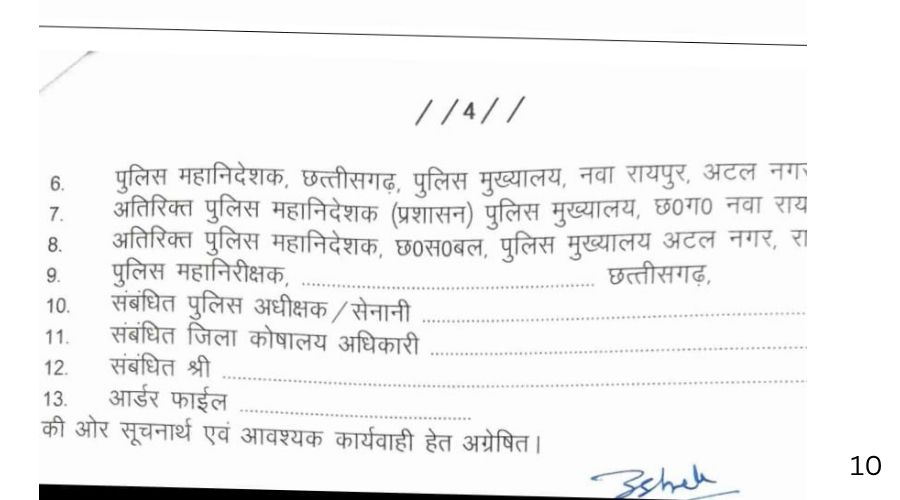 //4//
6. पुलिस महानिदेशक, छत्तीसगढ़, पुलिस मुख्यालय, नवा रायपुर, अटल नगर
7. अतिरिक्त पुलिस महानिदेशक (प्रशासन) पुलिस मुख्यालय, छ0ग0 नवा राय
8. अतिरिक्त पुलिस महानिदेशक, छ0स0बल, पुलिस मुख्यालय अटल नगर, रा
9. पुलिस महानिरीक्षक, .................................................... छत्तीसगढ़,
10. संबंधित पुलिस अधीक्षक/सेनानी ....................................................
11. संबंधित जिला कोषालय अधिकारी ....................................................
12. संबंधित श्री ....................................................
13. आर्डर फाईल ........................................
की ओर सूचनार्थ एवं आवश्यक कार्यवाही हेत अग्रेषित।
10